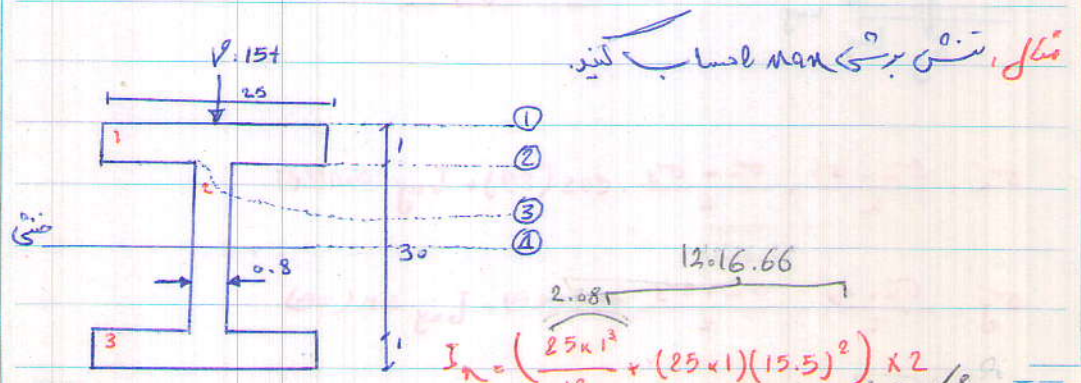 مثال، تنش برشی max حساب کنید.
V: 15t
25
①
1
1
②
2
③
خنثی
④
30
0.8
12016.66
2.08
3
1
Iₙ = (25×1³ + (25×1)(15.5)²) × 2
12